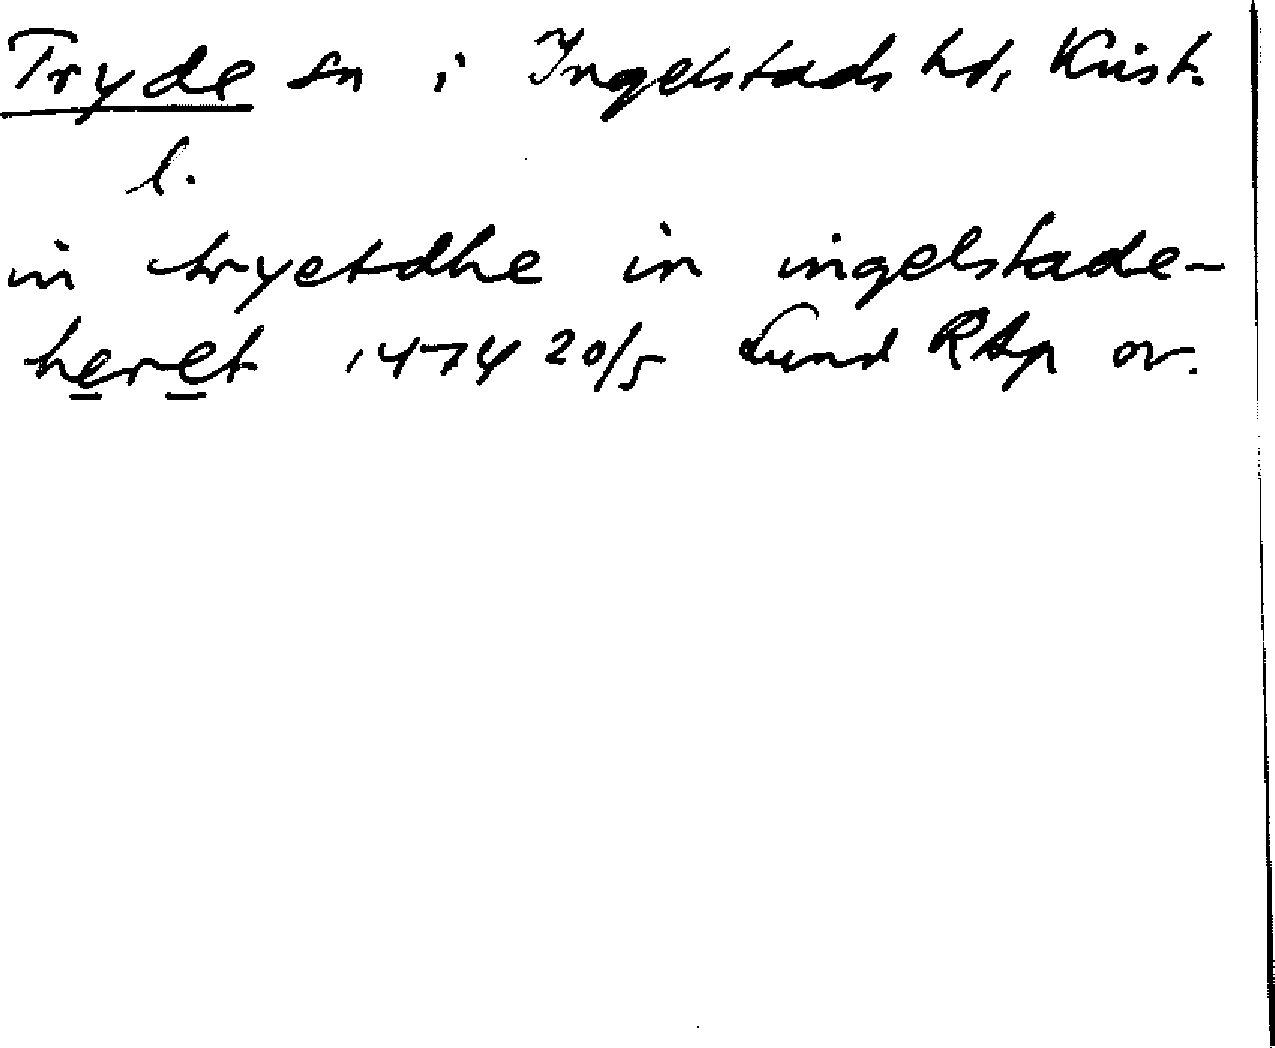 Tryde sn i Ingelstads hd, Krist.
l.
in tryetdhe in ingelstade-
heret 1474 20/5 Lund RAp or.